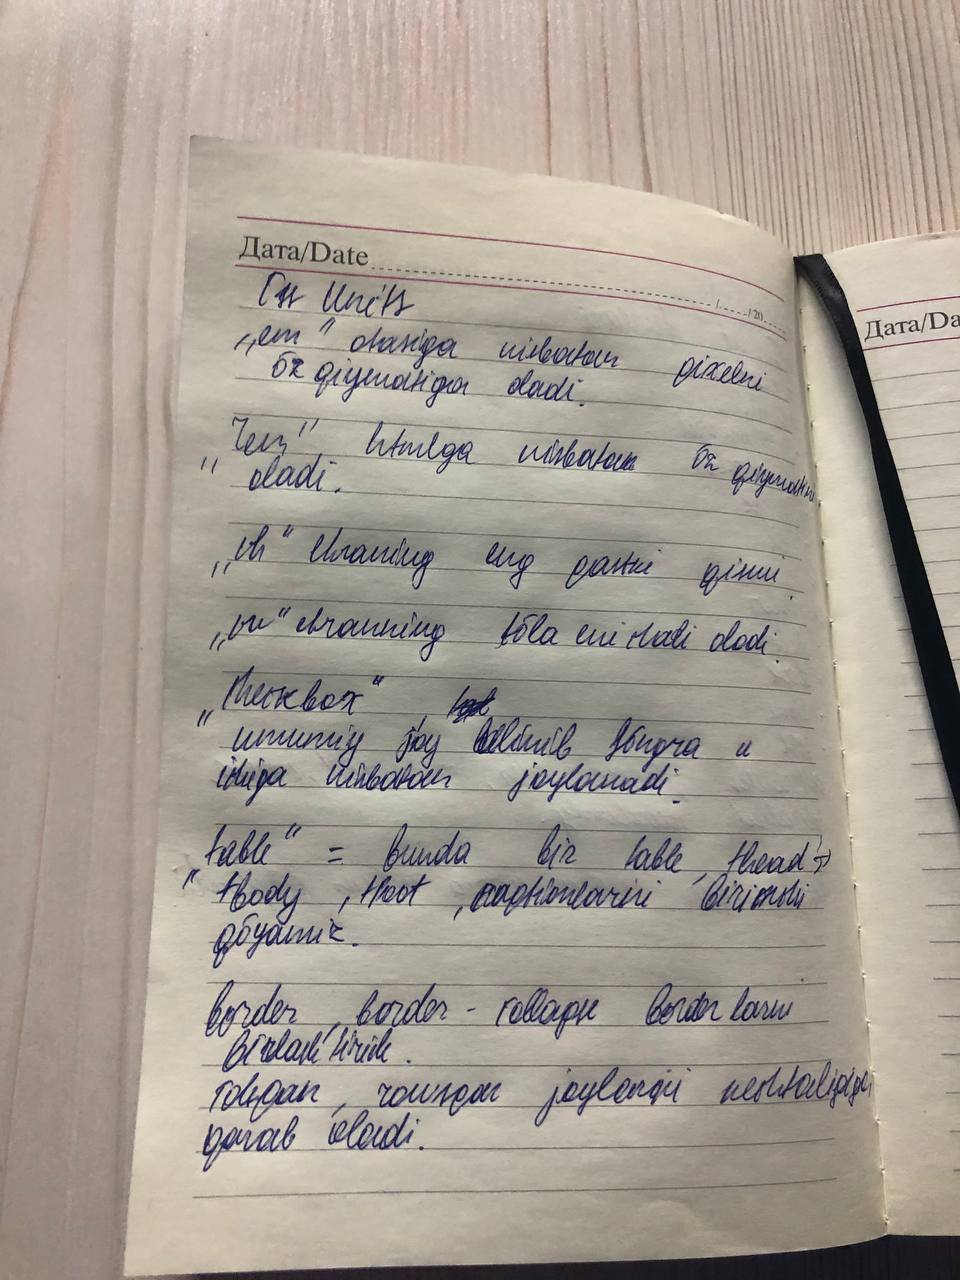 Дата/Date
/ /20
Дата/Da
Units
„em" otasiga nisbatan pixelni
öz qiymatiga oladi.
"rem" htmlga nisbatan öz qiymatini
oladi.
„vh" ekraning eng pastki qismi.
„vw" ekranning töla eni oladi.
"checkbox"
umumiy joy bölinib söngra u
ichiga nisbatan joylanadi.
"table" = bunda bir table, thead,
tbody, tfoot, captionlarni birinchi
qöyamiz.
border, border-collapse borderlarni
birlashtirish.
colspan, rowspan joylangi nechtaligiga
qarab oladi.